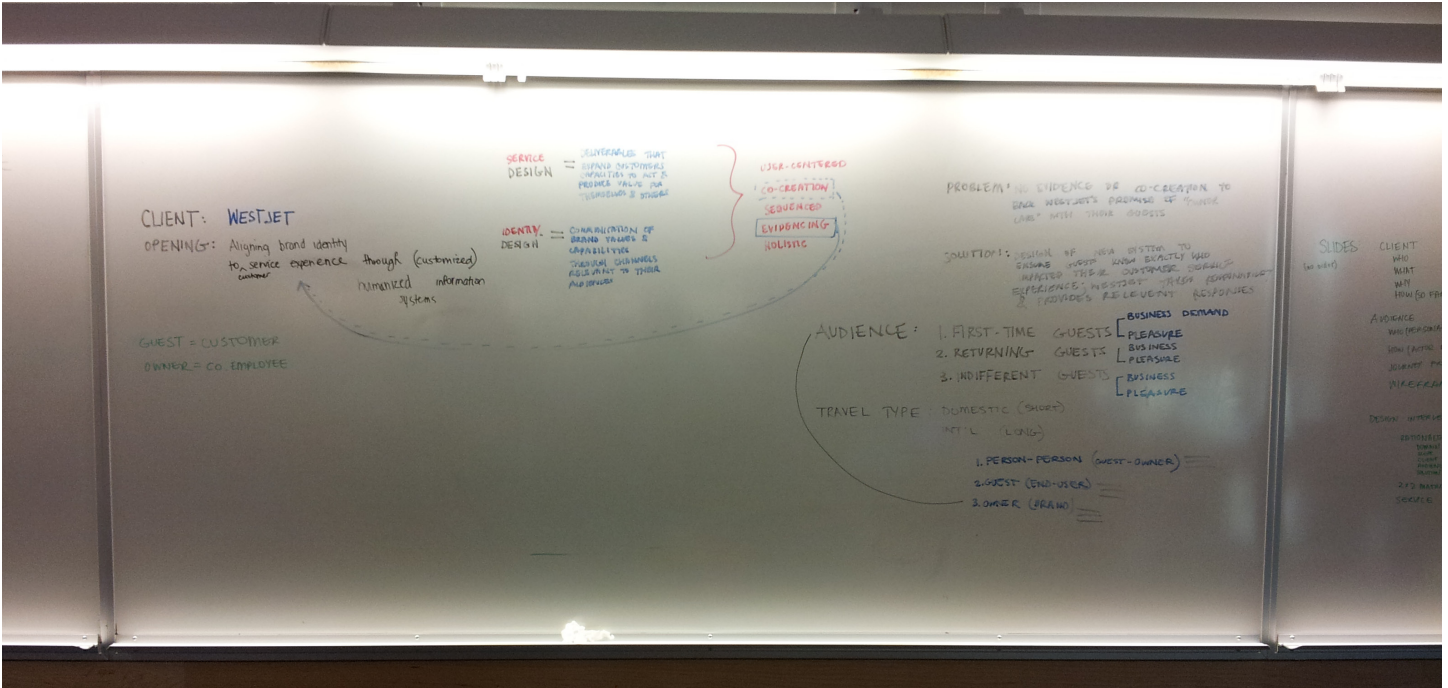 CLIENT: WESTJET
OPENING: Aligning brand identity
to customer service experience through (customized)
humanized information
systems
GUEST = CUSTOMER
OWNER = CO. EMPLOYEE
SERVICE DESIGN = DELIVERABLES THAT
EXPAND CUSTOMERS
CAPACITIES TO ACT &
PRODUCE VALUE FOR
THEMSELVES & OTHERS
IDENTITY DESIGN = COMMUNICATION OF
BRAND VALUES &
CAPABILITIES
THROUGH CHANNELS
RELEVANT TO THEIR
AUDIENCES
USER-CENTERED
CO-CREATION
SEQUENCED
EVIDENCING
HOLISTIC
PROBLEM: NO EVIDENCE OR CO-CREATION TO
BACK WESTJET'S PROMISE OF "OWNER
CARE" WITH THEIR GUESTS
SOLUTION: DESIGN OF NEW SYSTEM TO
ENSURE GUESTS KNOW EXACTLY WHO
IMPACTED THEIR CUSTOMER SERVICE
EXPERIENCE; WESTJET TAKES
& PROVIDES RELEVENT RESPONSES
AUDIENCE: 1. FIRST-TIME GUESTS
BUSINESS DEMAND
PLEASURE
2. RETURNING GUESTS
BUSINESS
PLEASURE
3. INDIFFERENT GUESTS
BUSINESS
PLEASURE
TRAVEL TYPE: DOMESTIC (SHORT)
INT'L (LONG)
1. PERSON-PERSON (GUEST-OWNER)
2. GUEST (END-USER)
3. OWNER (BRAND)
SLIDES CLIENT
WHO
WHAT
WHY
HOW (SO FA
AUDIENCE
WHO (PERSONA
HOW
JOURNEY
WIREFRAM
DESIGN
RATIONALE
SERVICE